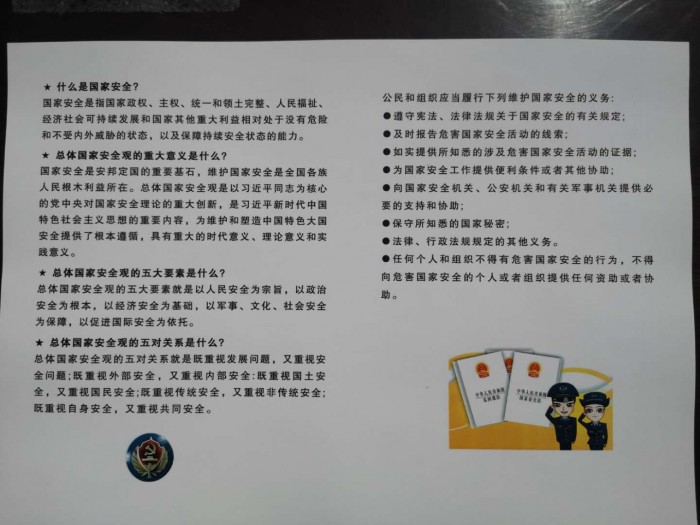 ★ 什么是国家安全?
国家安全是指国家政权、主权、统一和领土完整、人民福祉、
经济社会可持续发展和国家其他重大利益相对处于没有危险
和不受内外威胁的状态，以及保障持续安全状态的能力。
★ 总体国家安全观的重大意义是什么?
国家安全是安邦定国的重要基石，维护国家安全是全国各族
人民根木利益所在。总体国家安全观是以习近平同志为核心
的党中央对国家安全理论的重大创新，是习近平新时代中国
特色社会主义思想的重要内容，为维护和塑造中国特色大国
安全提供了根本遵循，具有重大的时代意义、理论意义和实
践意义。
★ 总体国家安全观的五大要素是什么?
总体国家安全观的五大要素就是以人民安全为宗旨，以政治
安全为根本，以经济安全为基础，以军事、文化、社会安全
为保障，以促进国际安全为依托。
★ 总体国家安全观的五对关系是什么?
总体国家安全观的五对关系就是既重视发展问题，又重视安
全问题;既重视外部安全，又重视内部安全:既重视国土安
全，又重视国民安全;既重视传统安全，又重视非传统安全;
既重视自身安全，又重视共同安全。
公民和组织应当履行下列维护国家安全的义务:
●遵守宪法、法律法规关于国家安全的有关规定;
●及时报告危害国家安全活动的线索;
●如实提供所知悉的涉及危害国家安全活动的证据;
●为国家安全工作提供便利条件或者其他协助;
●向国家安全机关、公安机关和有关军事机关提供必
要的支持和协助;
●保守所知悉的国家秘密;
●法律、行政法规规定的其他义务。
●任何个人和组织不得有危害国家安全的行为，不得
向危害国家安全的个人或者组织提供任何资助或者协
助。
中华人民共和国
反间谍法
中华人民共和国
国家安全法